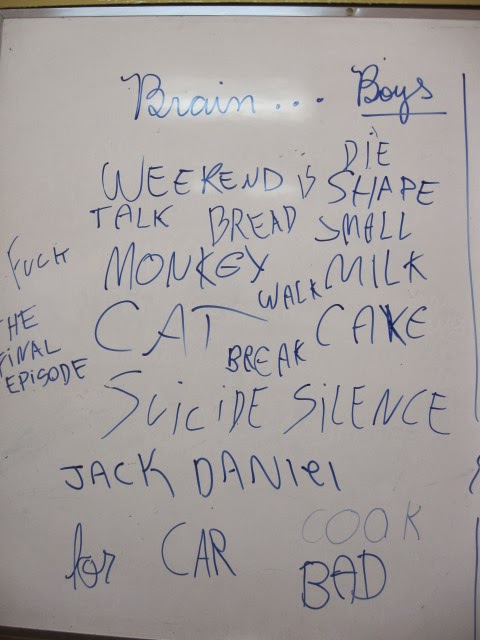 Brain... Boys
DIE
WEEKEND is SHAPE
TALK BREAD SMALL
FUCK MONKEY MILK
WALK
THE CAT CAKE
FINAL BREAK
EPISODE
SUICIDE SILENCE
JACK DANIEl
COOK
for CAR
BAD